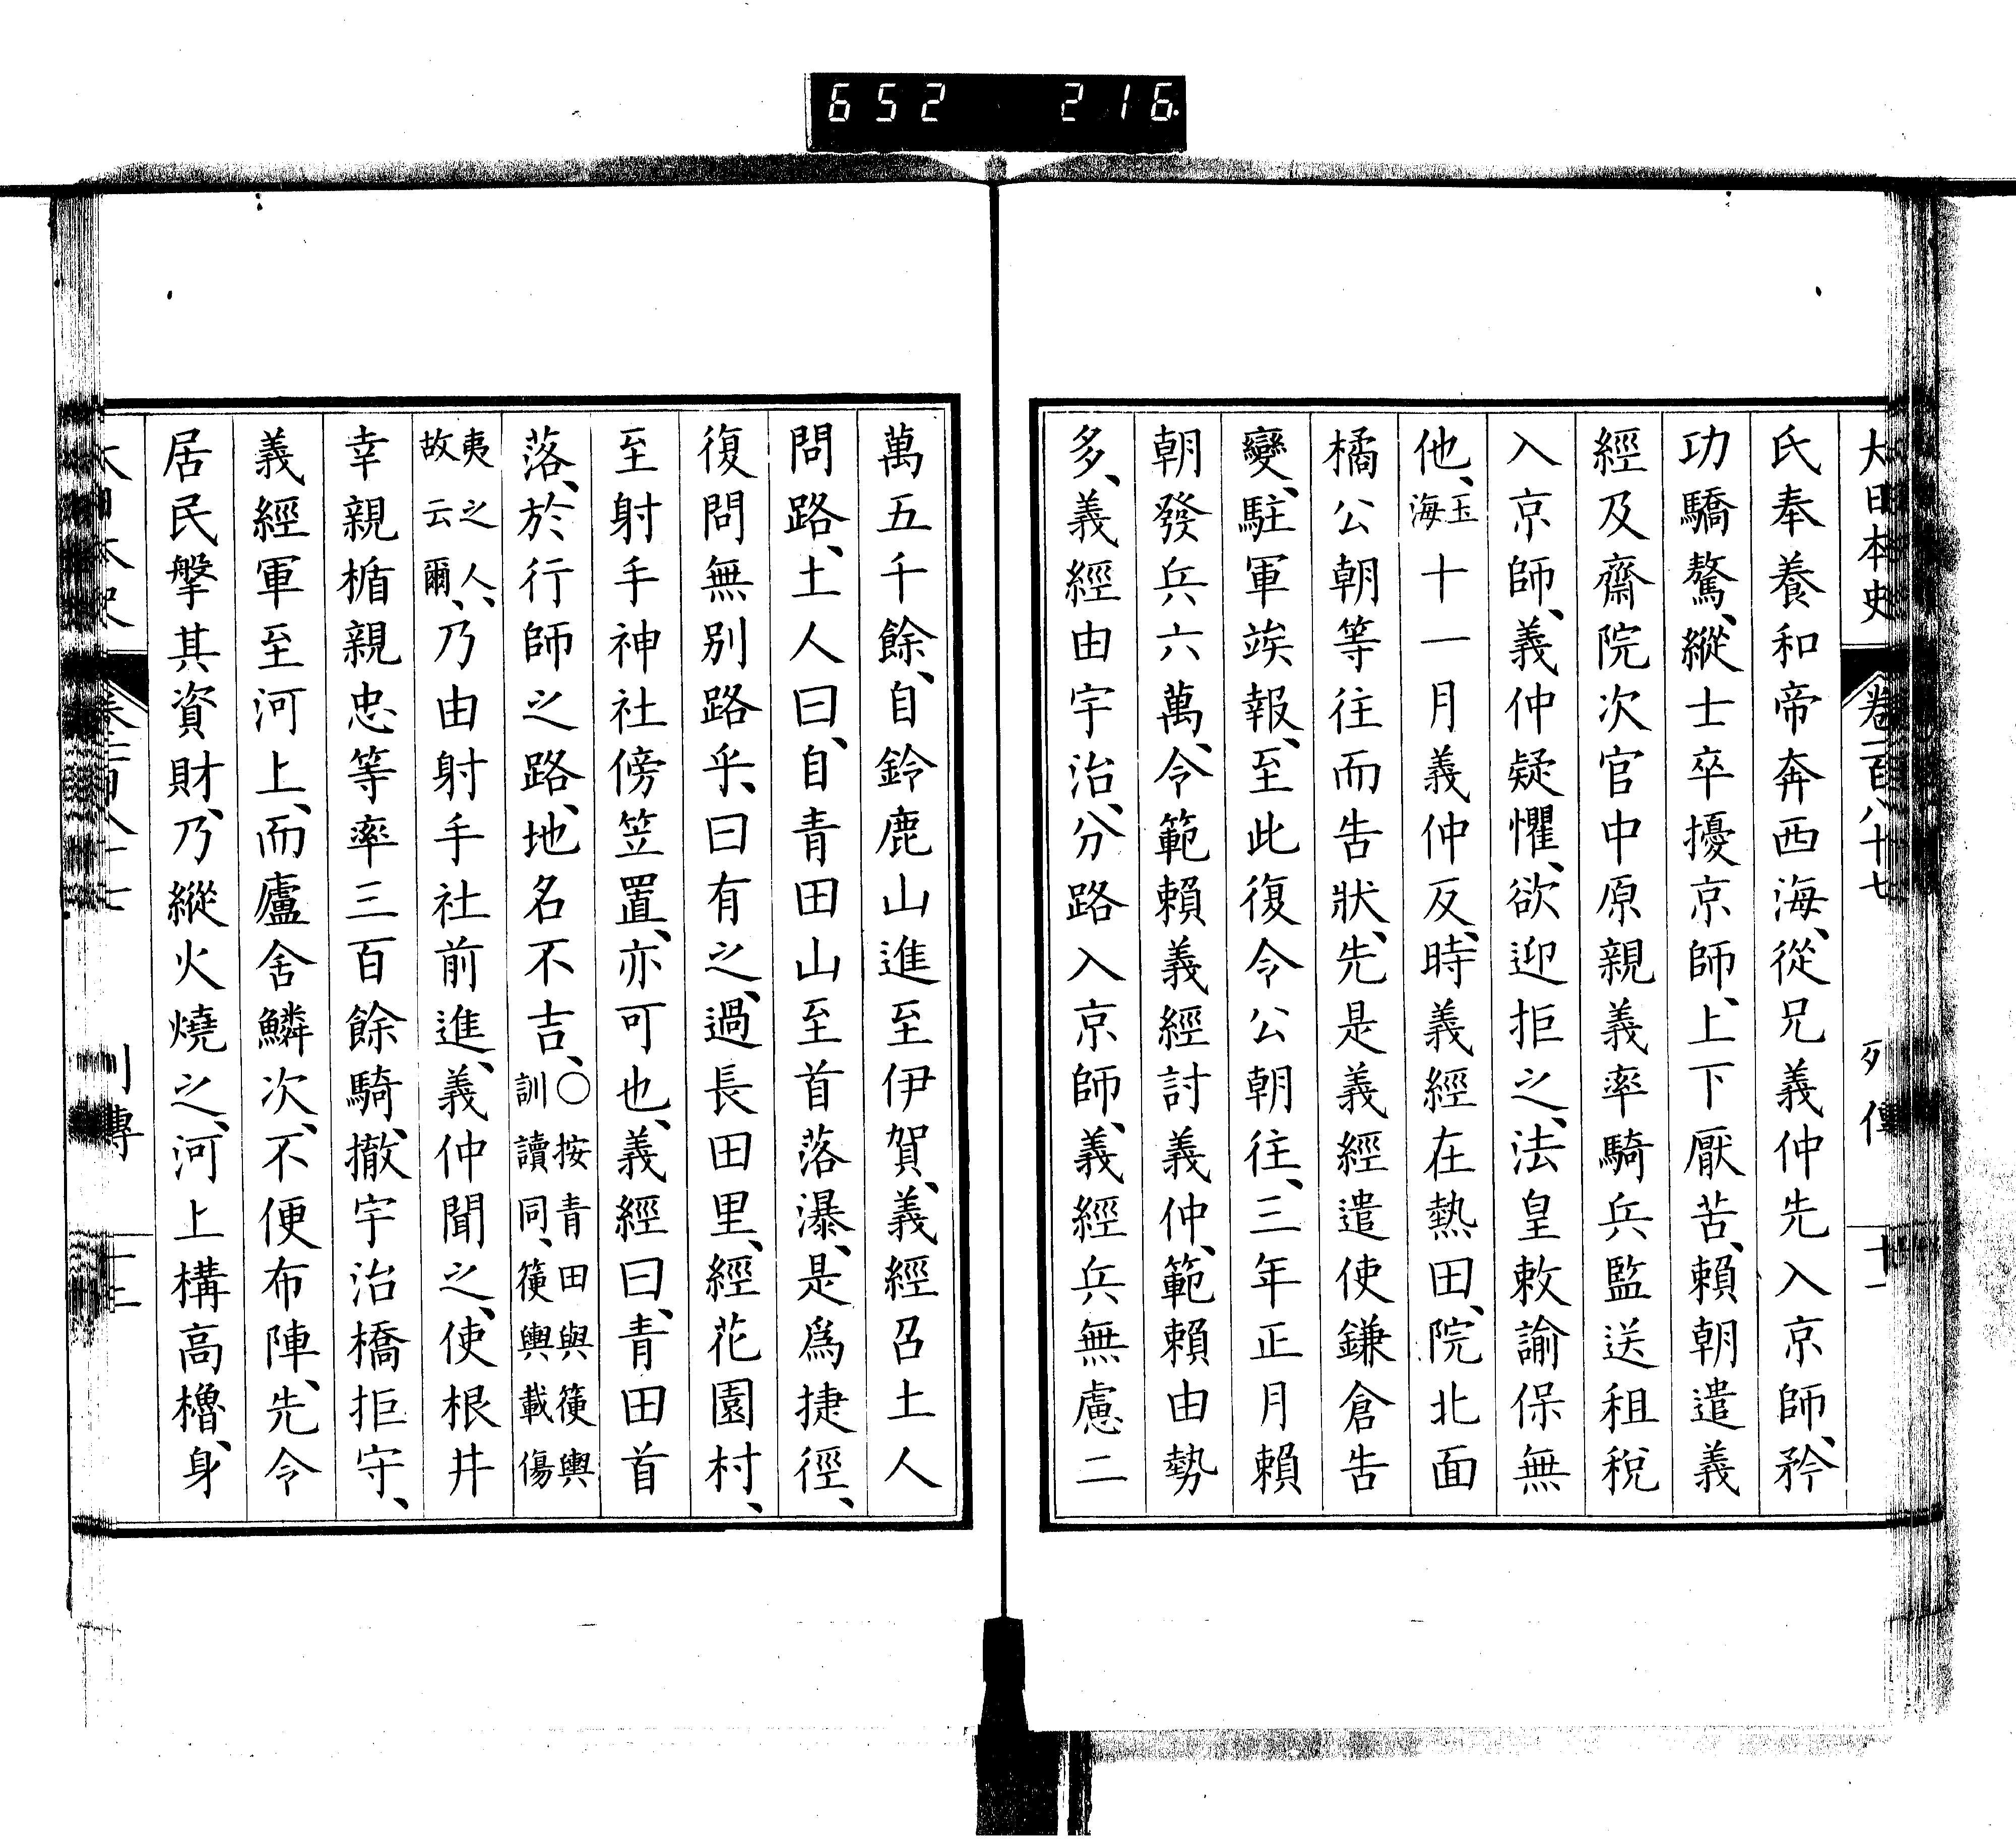 652 216.
大日本史 卷一百八十七 列傳 十一
氏奉養和帝奔西海、從兄義仲先入京師、矜
功驕驁、縱士卒擾京師、上下厭苦、賴朝遣義
經及齋院次官中原親義率騎兵監送租稅
入京師、義仲疑懼、欲迎拒之、法皇敕諭保無
他、玉海十一月義仲反、時義經在熱田、院北面
橘公朝等往而告狀、先是義經遣使鎌倉告
變、駐軍竢報、至此復令公朝往、三年正月賴
朝發兵六萬、令範賴義經討義仲、範賴由勢
多、義經由宇治、分路入京師、義經兵無慮二
萬五千餘、自鈴鹿山進至伊賀、義經召土人
問路、土人曰、自青田山至首落瀑、是爲捷徑、
復問無別路乎、曰有之、過長田里、經花園村、
至射手神社傍笠置、亦可也、義經曰、青田首
落、於行師之路、地名不吉、○按青田與䈄輿訓讀同、䈄輿載傷
夷之人、故云爾、乃由射手社前進、義仲聞之、使根井
幸親楯親忠等率三百餘騎、撤宇治橋拒守、
義經軍至河上、而廬舍鱗次、不便布陣、先令
居民搫其資財、乃縱火燒之、河上構高櫓、身